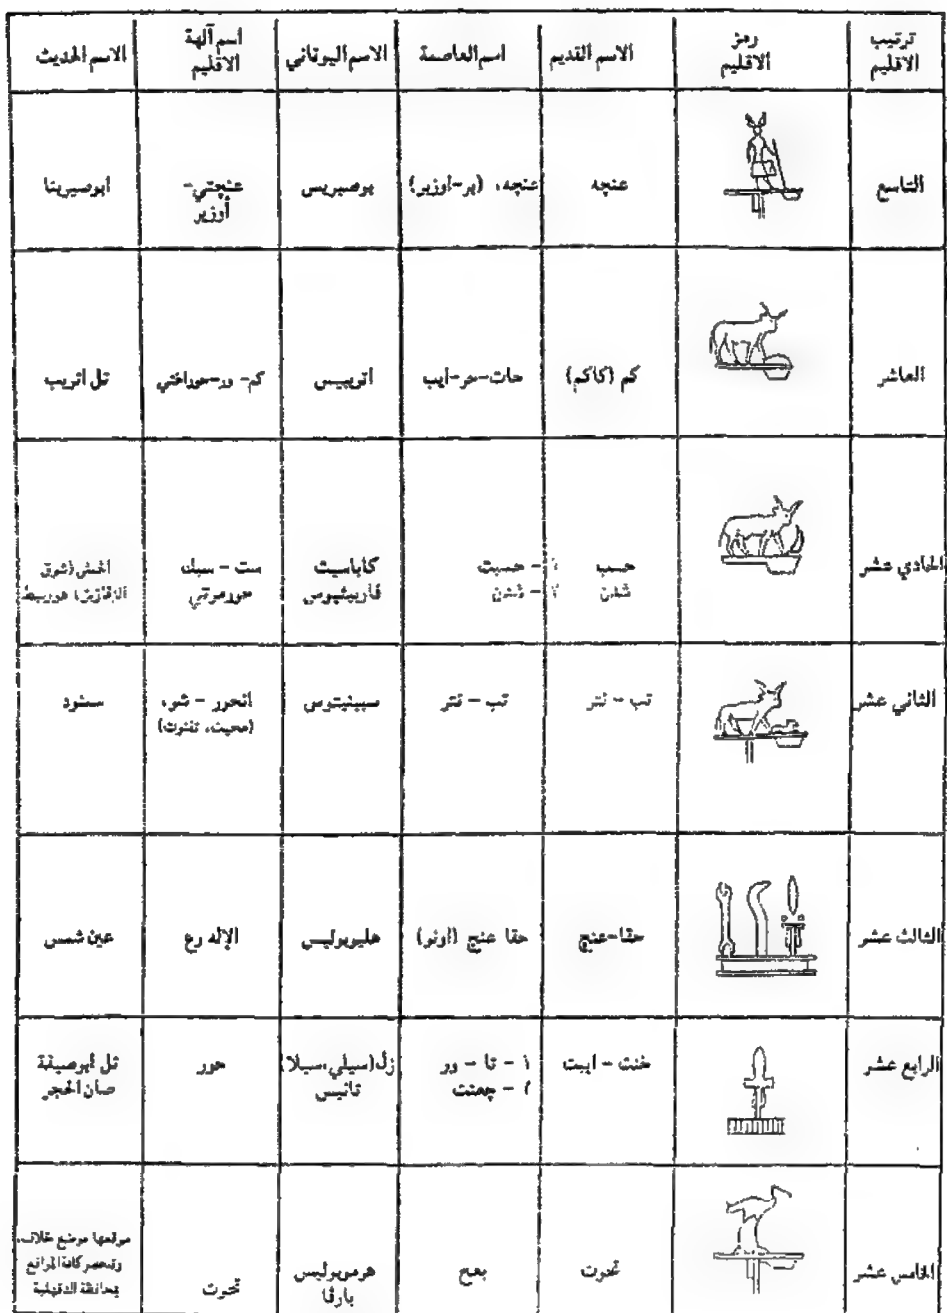 ترتيب الاقليم | رمز الاقليم | الاسم القديم | اسم العاصمة | الاسم اليوناني | اسم آلهة الاقليم | الاسم الحديث
التاسع | عنجه | عنجه، (بر-اوزير) | بوصيريس | عنجتي- أوزير | ابوصيربنا
العاشر | كم (كاكم) | حات-حر-ايب | اتريبيس | كم- ور-حوراختي | تل اتريب
الحادي عشر | حسب | ١ - حسبت | كاباسيت | ست - سبك
شدن | ٢ - شدن | فاربيثيوس | حورمرتي | هوربيط
الثاني عشر | تب - نتر | تب - نتر | سبينيتوس | انحور - شو، | سمنود
(محيت، تفنوت)
الثالث عشر | حقا-عنج | حقا عنج (اونو) | هليوبوليس | الإله رع | عين شمس
الرابع عشر | خنت - ايبت | ١ - تا - ور | زل(سيلي،سيلا) | حور | تل ابوصيفة
٢ - جعنت | تانيس | صان الحجر
الخامس عشر | تحوت | بعح | هرموبوليس بارفا | تحوت | موقعها موضع خلاف،
وتنحصر كافة المواقع
بمحافظة الدقهلية